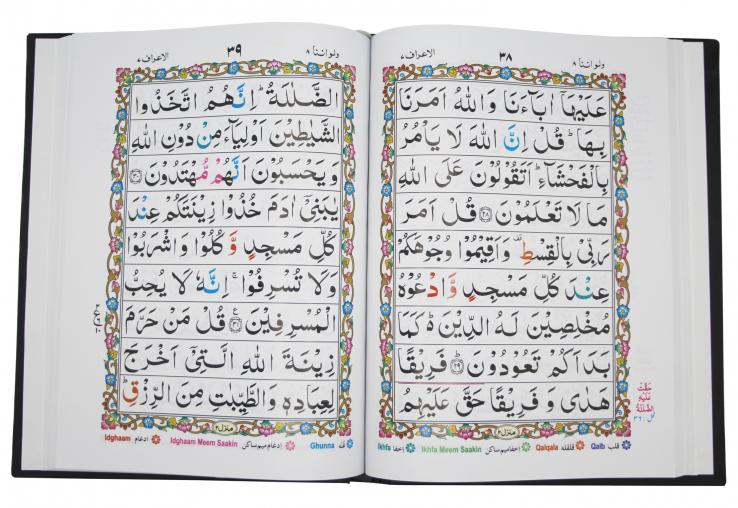 ولواننا ٨
٣٨
الاعراف ٧
عَلَيْهَاۤ اٰبَآءَنَا وَاللّٰهُ اَمَرَنَا
بِهَا ؕ قُلْ اِنَّ اللّٰهَ لَا يَاْمُرُ
بِالْفَحْشَآءِ ؕ اَتَقُوْلُوْنَ عَلَى اللّٰهِ
مَا لَا تَعْلَمُوْنَ ﴿٢٨﴾ قُلْ اَمَرَ
رَبِّيْ بِالْقِسْطِ ۟ وَاَقِيْمُوْا وُجُوْهَكُمْ
عِنْدَ كُلِّ مَسْجِدٍ وَّادْعُوْهُ
مُخْلِصِيْنَ لَهُ الدِّيْنَ ؕ۬ كَمَا
بَدَاَكُمْ تَعُوْدُوْنَ ﴿٢٩﴾ فَرِيْقًا
هَدٰى وَ فَرِيْقًا حَقَّ عَلَيْهِمُ
منزل ٢
Ikhfa اِخفا Ikhfa Meem Saakin اِخفا ميم ساكن Qalqala قلقله Qalb قلب
ولواننا ٨
٣٩
الاعراف ٧
الضَّلٰلَةُ ؕ اِنَّهُمُ اتَّخَذُوا
الشَّيٰطِيْنَ اَوْلِيَآءَ مِنْ دُوْنِ اللّٰهِ
وَيَحْسَبُوْنَ اَنَّهُمْ مُّهْتَدُوْنَ ﴿٣٠﴾
يٰبَنِيْۤ اٰدَمَ خُذُوْا زِيْنَتَكُمْ عِنْدَ
كُلِّ مَسْجِدٍ وَّكُلُوْا وَاشْرَبُوْا
وَلَا تُسْرِفُوْا ۚ اِنَّهٗ لَا يُحِبُّ
الْمُسْرِفِيْنَ ﴿٣١﴾ قُلْ مَنْ حَرَّمَ
زِيْنَةَ اللّٰهِ الَّتِيْۤ اَخْرَجَ
لِعِبَادِهٖ وَالطَّيِّبٰتِ مِنَ الرِّزْقِ ؕ
منزل ٢
Idghaam ادغام Idghaam Meem Saakin اِدغام ميم ساكن Ghunna غنه